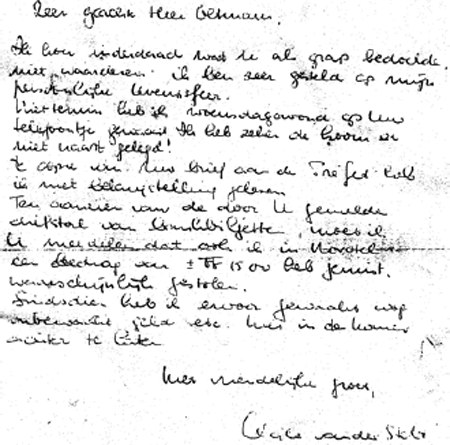 Zeer geachte Heer Oltmans,
Ik kon inderdaad wat U als grap bedoelde,
niet waarderen. ik ben zeer gesteld op mijn
persoonlijke levenssfeer.
Niettemin heb ik woensdagavond op Uw
telefoontje gewacht. Ik heb zeker de hoorn er
niet naast gelegd!
Uw brief aan de Préfet heb
ik met belangstelling gelezen
Ten aanzien van de door U gemelde
diefstal van bankbiljetten, moet ik
U mededelen dat ook ik in
een bedrag van ± FF 1500 heb gemist.
waarschijnlijk gestolen.
Sindsdien heb ik ervoor gewaakt nog
onbewaakt geld etc. hier in de kamer
achter te laten
Met vriendelijke groet,
Cécile van der